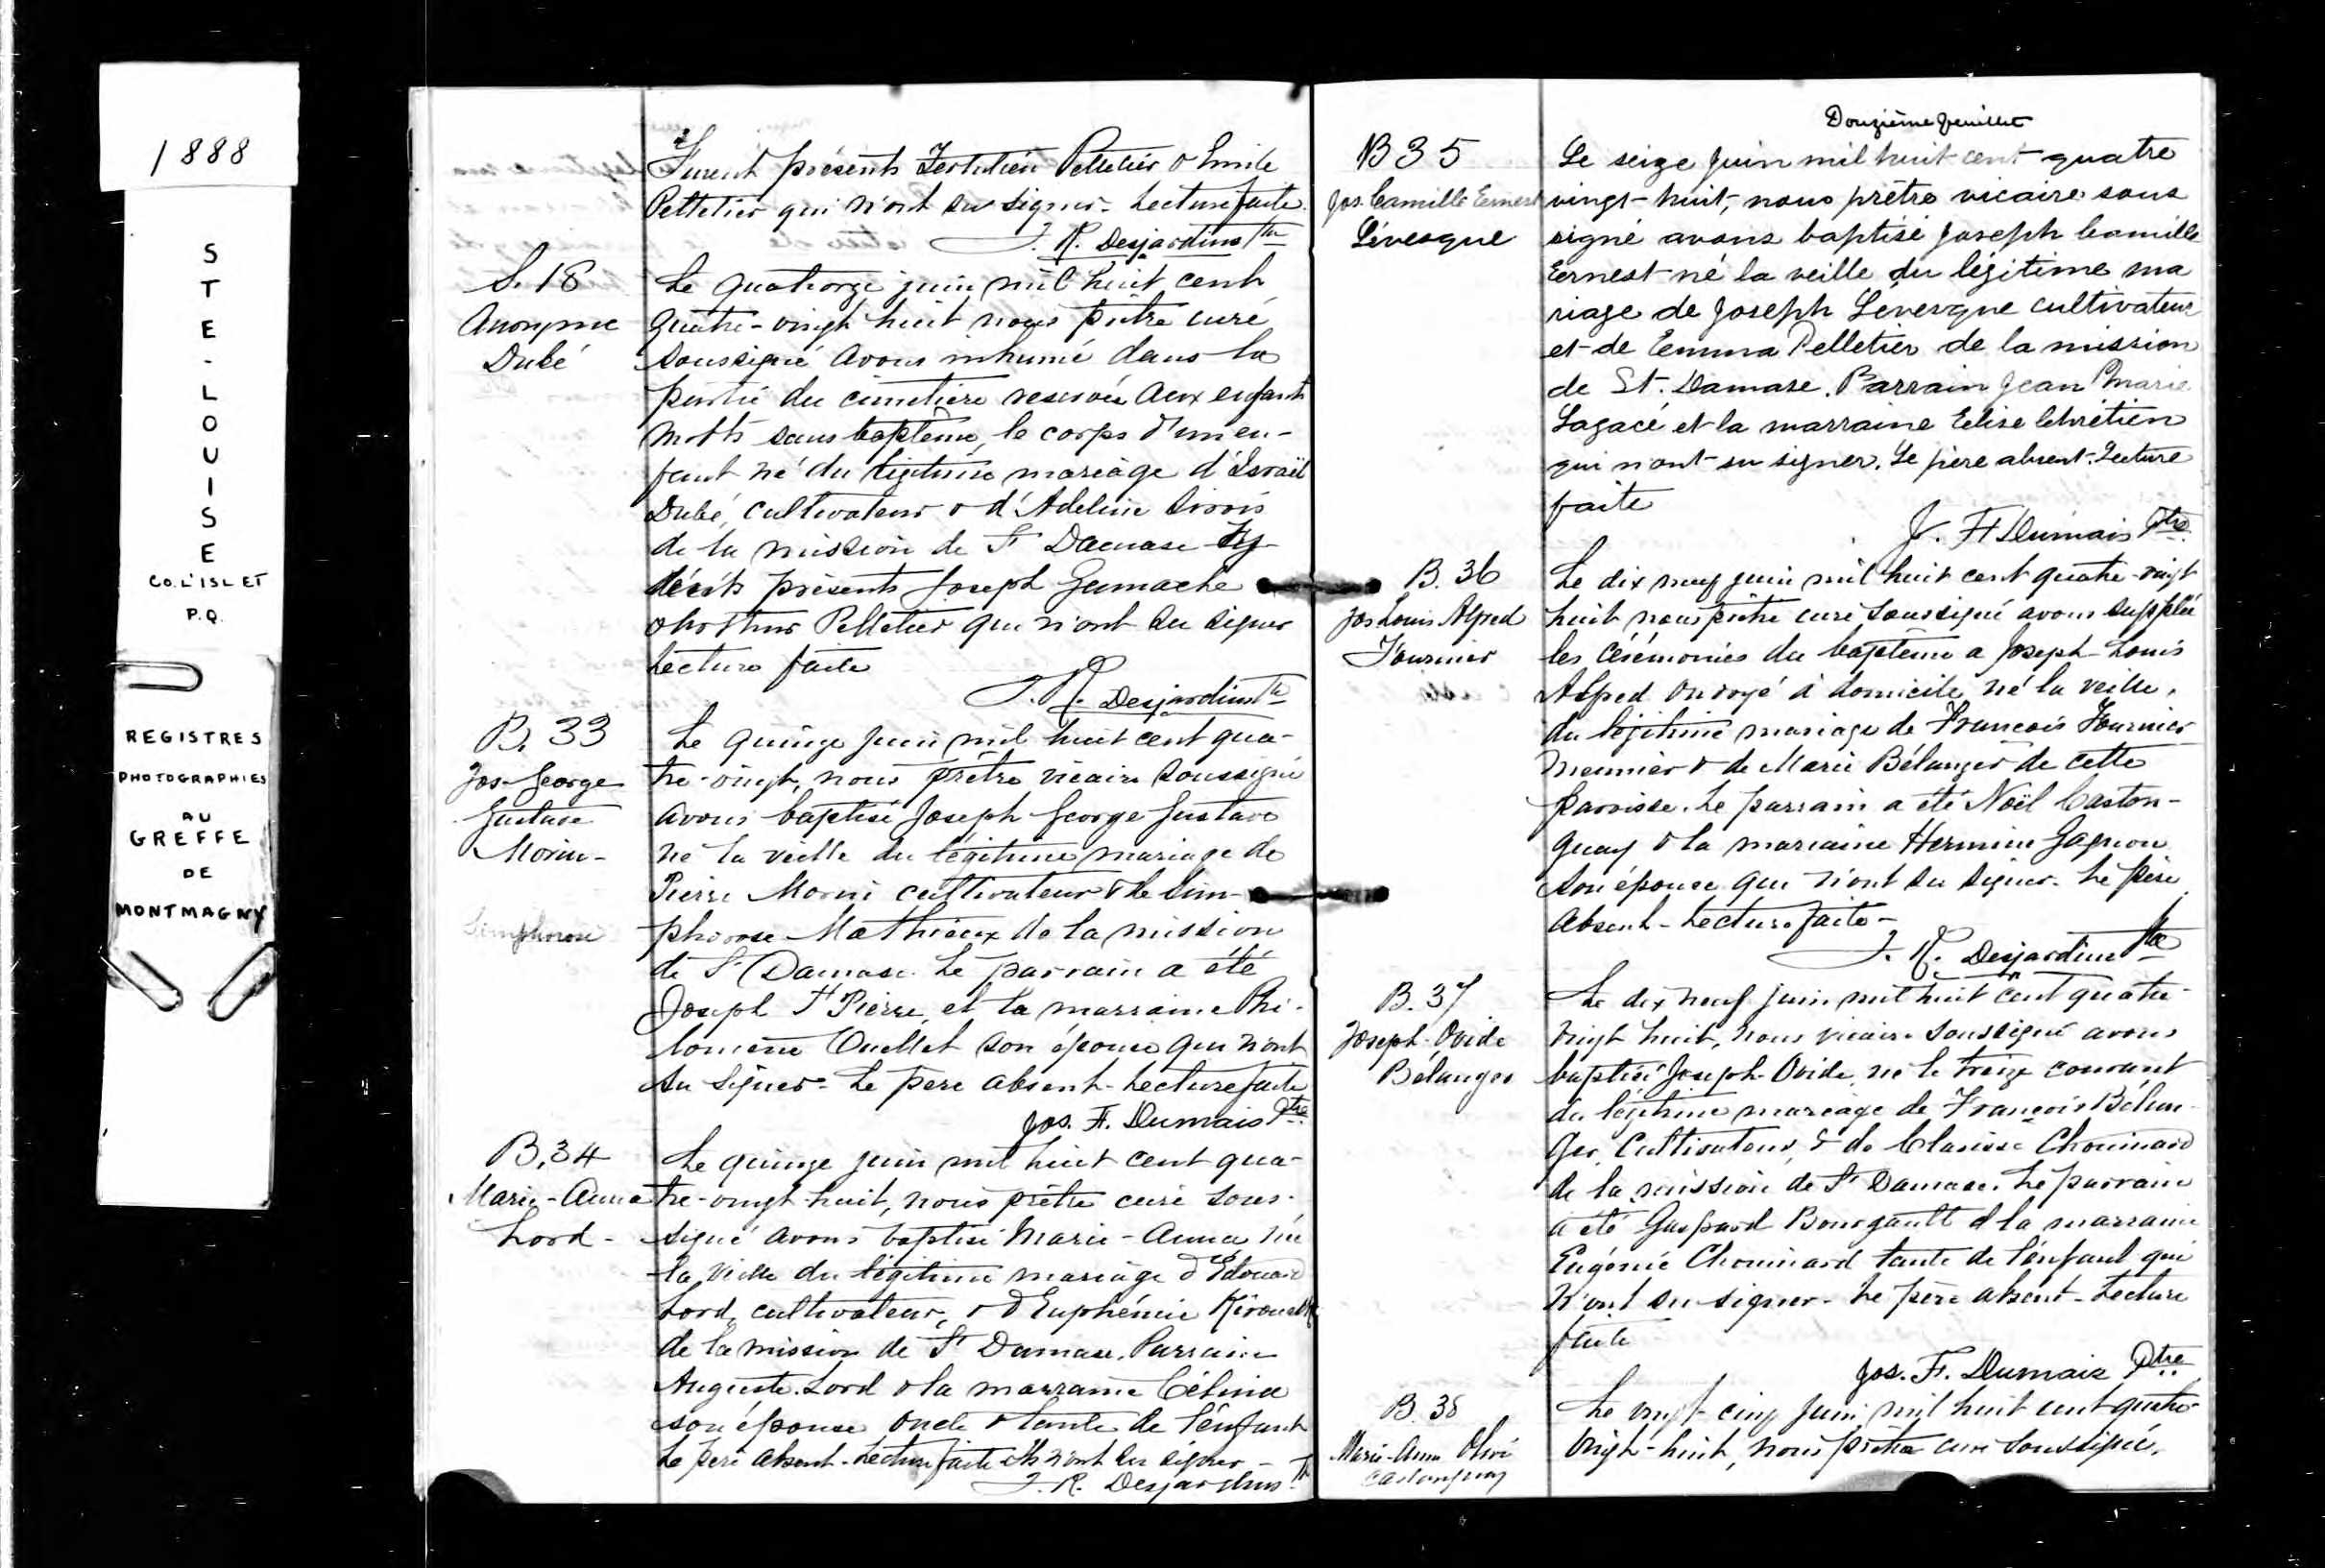 1888
STE-LOUISE
CO. L'ISLET
P.Q.
REGISTRES
PHOTOGRAPHIES
AU
GREFFE
DE
MONTMAGNY
Furent présents Pelletier & Emile
Pelletier qui n'ont su signer. Lecture faite.
J. R. Desjardins Ptre
S. 18
Anonyme
Dubé
Le quatorze juin mil huit cent
quatre-vingt huit nous prêtre curé
soussigné avons inhumé dans la
partie du cimetière reservée aux enfants
morts sans baptême, le corps d'un en-
fant né du légitime mariage d'Israël
Dubé, cultivateur & d'Adeline Sirois
de la mission de St Damase
présents Joseph Gamache
Pelletier qui n'ont su signer
Lecture faite
J. R. Desjardins Ptre
B. 33
Jos-George
Gustave
Morin-
Simphorose
Le quinze juin mil huit cent qua-
tre-vingt, nous prêtre vicaire soussigné
avons baptisé Joseph George Gustave
né la veille du légitime mariage de
Pierre Morin cultivateur & de Sim-
phorose Mathieux de la mission
de St Damase. Le parrain a été
Joseph St Pierre, et la marraine Phi-
lomène Ouellet son épouse qui n'ont
su signer. Le père absent. Lecture faite
Jos. F. Dumais Ptre
B. 34
Marie-Anna
Lord-
Le quinze juin mil huit cent qua-
tre-vingt-huit, nous prêtre curé sous-
signé avons baptisé Marie-Anna née
la veille du légitime mariage d'Edouard
Lord, cultivateur, & d'Euphémie Kérouack
de la mission de St Damase. Parrain
Auguste Lord & la marraine Célina
son épouse oncle & tante de l'enfant
Le père absent. Lecture faite ils n'ont su signer -
J. R. Desjardins Ptre
Douzième feuillet
B 35
Jos. Camille Ernest
Lévesque
Le seize juin mil huit cent quatre
vingt-huit, nous prêtre vicaire sous
signé avons baptisé Joseph Camille
Ernest né la veille du légitime ma
riage de Joseph Levesque cultivateur
et de Emma Pelletier de la mission
de St. Damase. Parrain Jean Marie
Lagacé et la marraine Elise Chrétien
qui n'ont su signer. Le père absent. Lecture
faite
J. F. Dumais Ptre
B. 36
Jos Louis Alfred
Fournier
Le dix neuf juin mil huit cent quatre-vingt
huit nous prêtre curé soussigné avons suppléé
les cérémonies du baptême a Joseph Louis
Alfred ondoyé à domicile né la veille,
du légitime mariage de François Fournier
meunier & de Marie Bélanger de cette
paroisse. Le parrain a été Noël Caston-
guay & la marraine Hermine Gagnon
son épouse qui n'ont su signer. Le père
absent - Lecture faite -
J. R. Desjardins Ptre
B. 37
Joseph-Ovide
Bélanger
Le dix neuf juin mil huit cent quatre-
vingt huit, nous vicaire soussigné avons
baptisé Joseph-Ovide, né le treize courant
du légitime mariage de François Bélan-
ger, cultivateur, & de Clarisse Chouinard
de la mission de St Damase. Le parrain
a été Gaspard Bourgault & la marraine
Eugénie Chouinard tante de l'enfant qui
n'ont su signer. Le père absent - Lecture
faite
Jos. F. Dumais Ptre
B. 38
Marie-Anna
Castonguay
Le vingt-cinq juin mil huit cent quatre-
vingt-huit, nous prêtre curé soussigné,